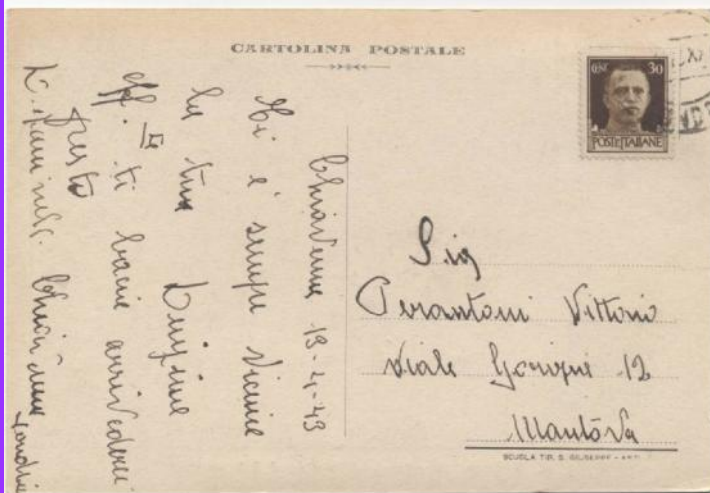 CARTOLINA POSTALE
CENT. 30
POSTE ITALIANE
Chiavenna 19-4-43
Ti è sempre vicine
la tua Luigina
aff. ti bacia arrivederci
presto
Chiavenna
Sondrio
Sig
Perantoni Vittorio
Viale Gorizia 12
Mantova
SCUOLA TIP. S. GIUSEPPE - ASTI